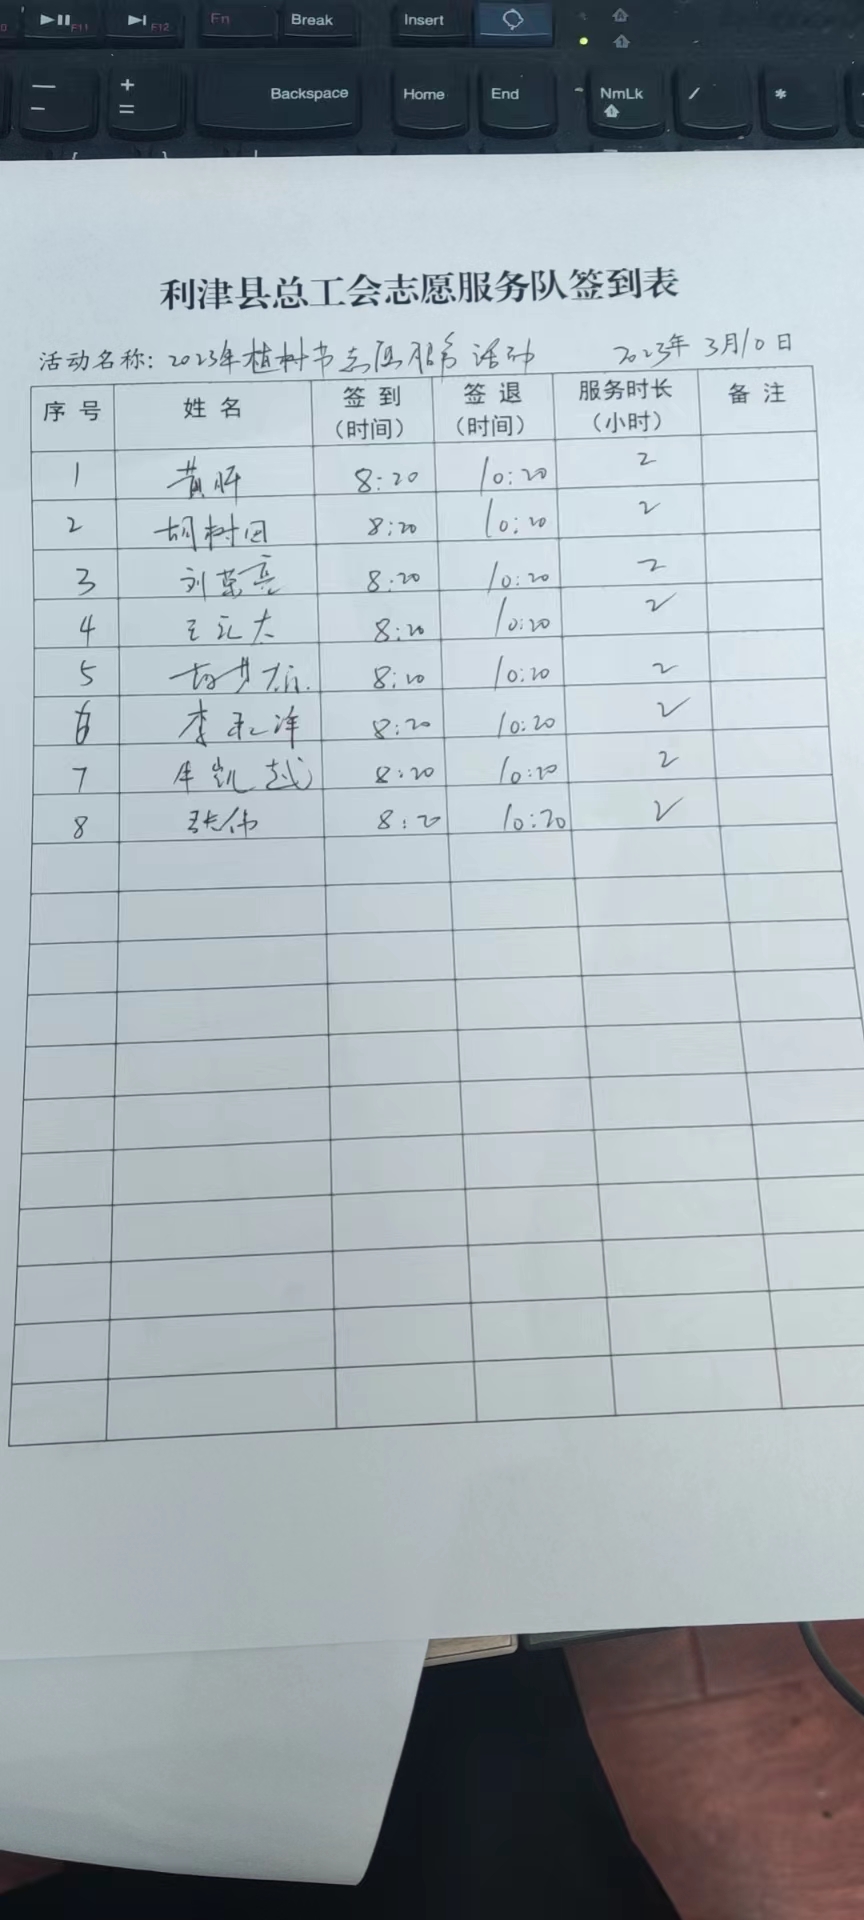 F11
F12
Fn
Break
Insert
Backspace
Home
End
NmLk
/
*
利津县总工会志愿服务队签到表
活动名称：2023年植树节志愿服务活动 2023年3月10日
序号 姓名 签到（时间） 签退（时间） 服务时长（小时） 备注
1 黄 8:20 10:20 2
2 胡树田 8:20 10:20 2
3 刘荣亮 8:20 10:20 2
4 王 大 8:20 10:20 2
5 8:20 10:20 2
6 李 洋 8:20 10:20 2
7 牛凯越 8:20 10:20 2
8 张伟 8:20 10:20 2